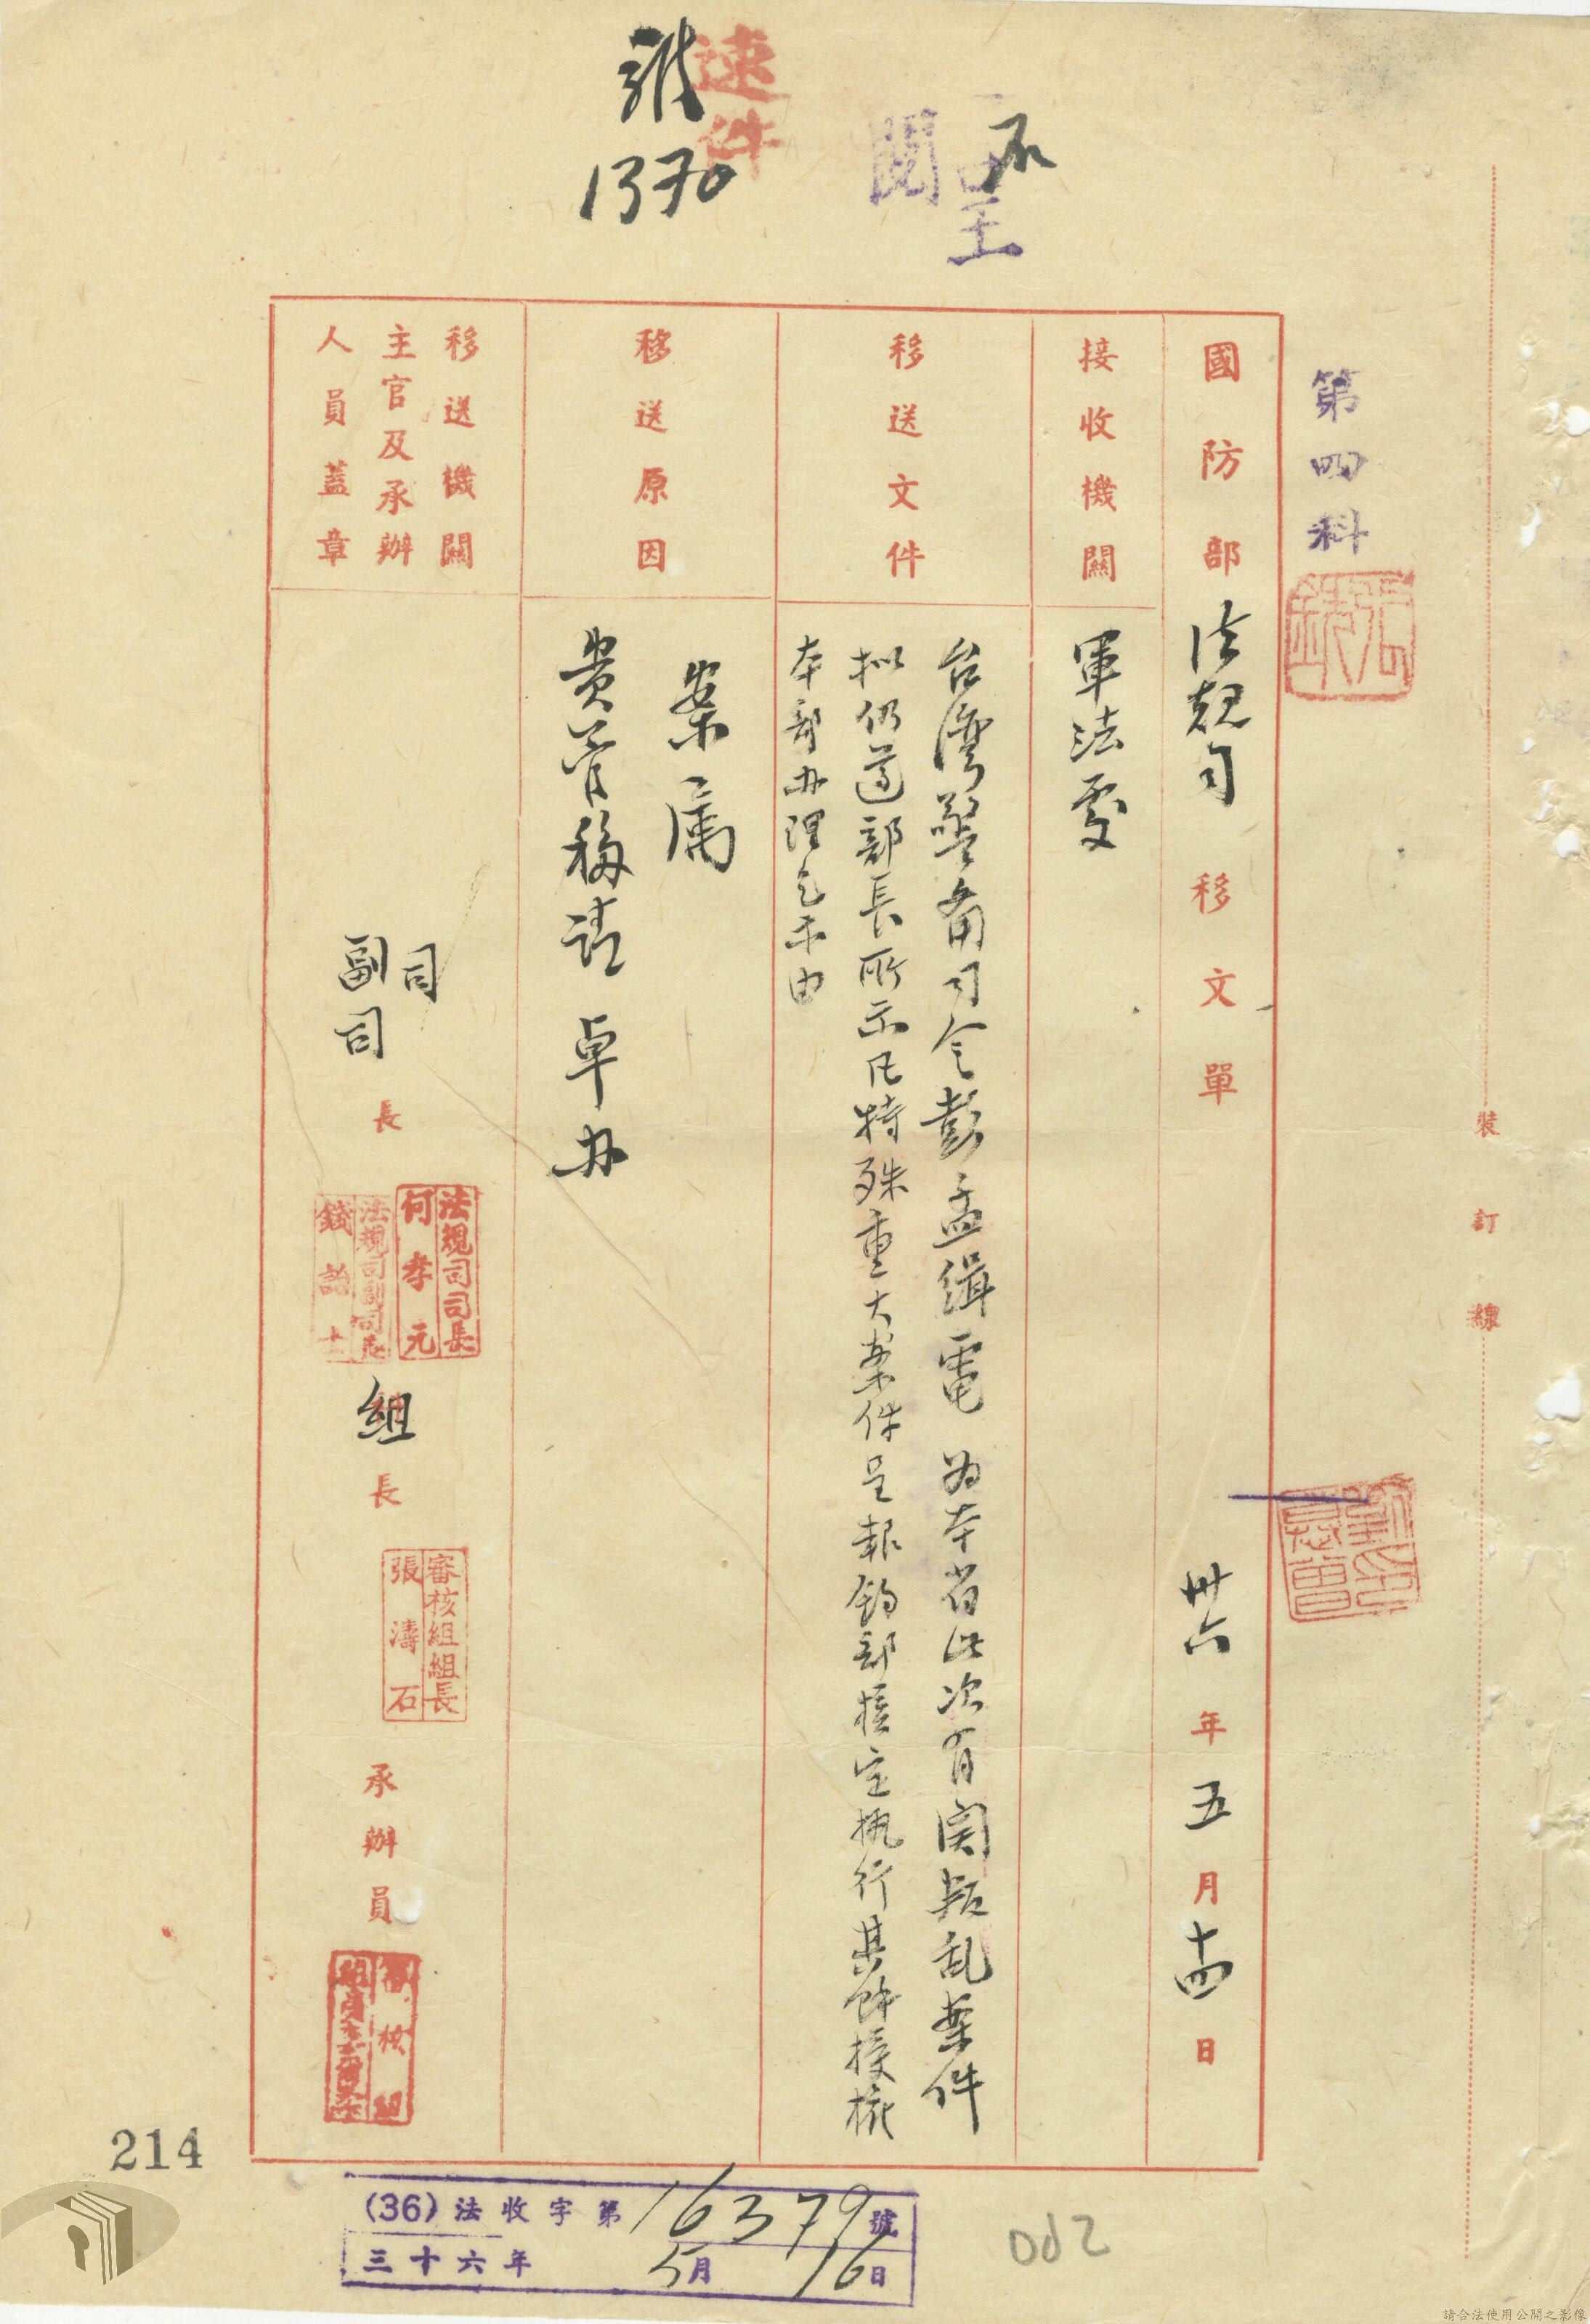 速件
1370
閱
王
第四科
國防部法規司移文單 卅六年五月十四日
接收機關
軍法處
移送文件
台灣警备司令彭孟緝電 为本省此次有関叛乱案件
拟仍遵部長所示凡特殊重大案件呈報鈞部核定执行其餘授權
本部办理乞示由
移送原因
案属
貴管移請 卓办
移送機關
主官及承辦
人員蓋章
司
副司
長
法規司司長
何孝元
法規司副司長
組長
審核組組長
張濤石
承辦員
審核組
裝訂線
(36)法收字第16379號
三十六年5月16日
214
請合法使用公開之影像